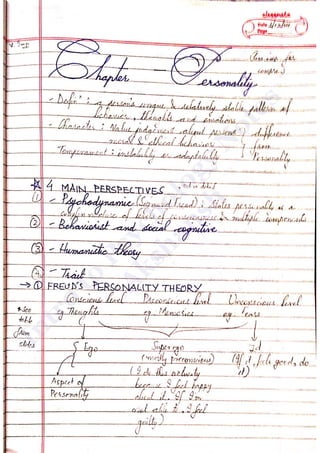 classmate
Date
Page
Chapter - Personality
- Defn: a person's unique & relatively stable pattern of
behavior, thoughts and emotions
- Character: Value judgement about person's
moral & ethical behavior
Temperament: or adaptability
difference
from
Personality
4 MAIN PERSPECTIVES
① - Psychodynamic (Sigmund Freud): States personality is a
of levels of consciousness & multiple components
② - Behaviorist and social cognitive
③ - Humanistic theory
④ - Trait
→ ① FREUD'S PERSONALITY THEORY
Conscious level Preconscious level Unconscious level
eg. Thoughts eg. Memories eg. Fears
* See
table
from
slides
Ego Superego Id
(mostly preconscious) (If it feels good, do
it)
(I do this activity
because I feel happy
about it. If I'm
not able it, I feel
guilty)
Aspect of
Personality